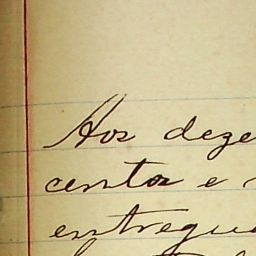 Aos deze
centos e
entregue